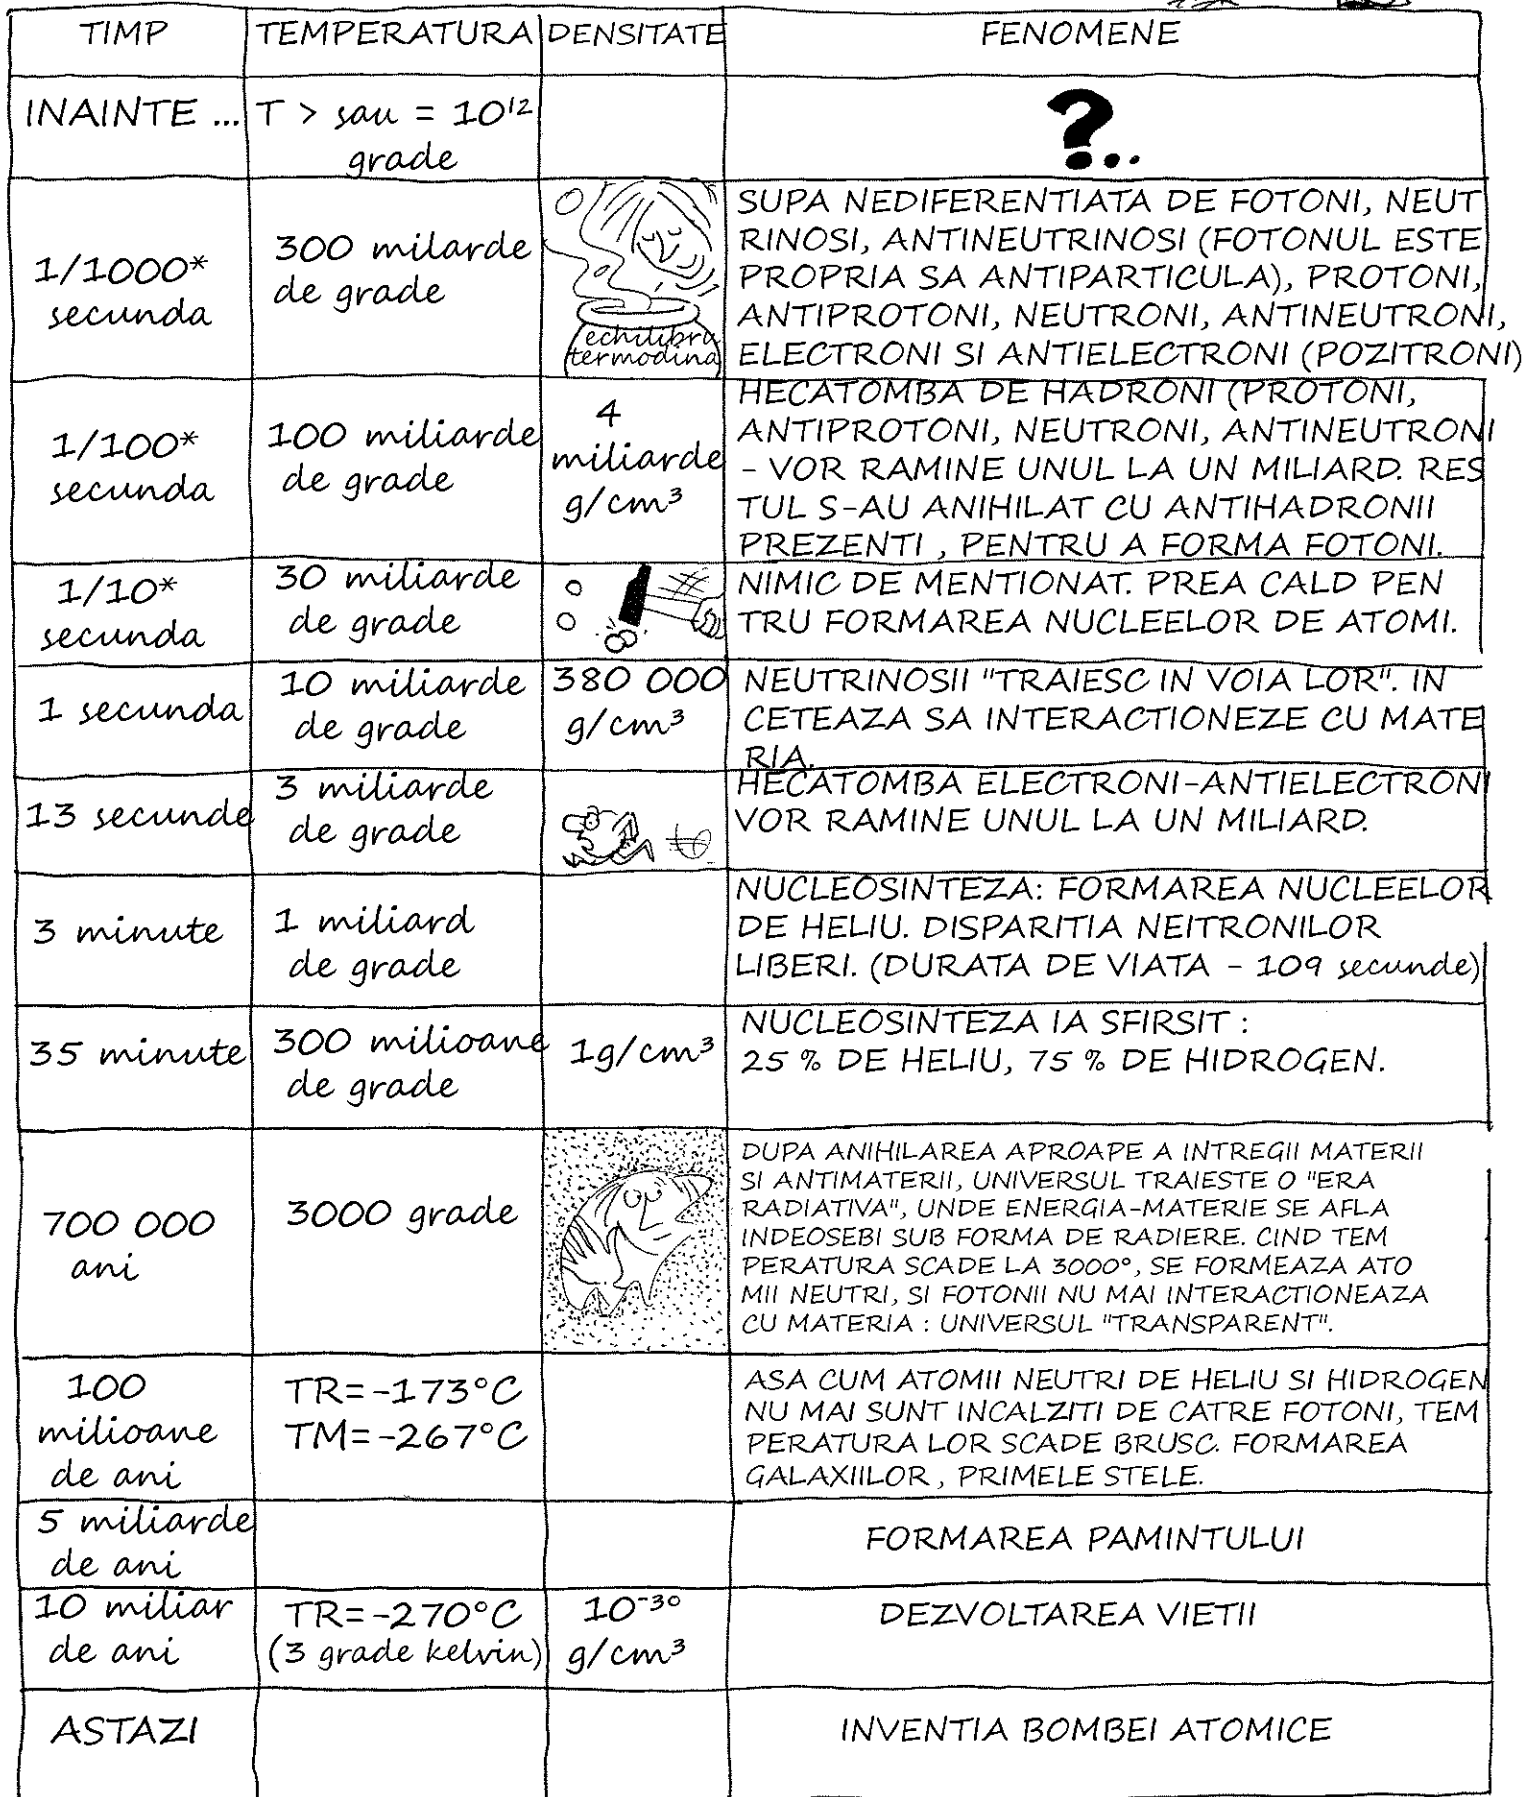 TIMP TEMPERATURA DENSITATE FENOMENE
INAINTE ...
T > sau = 10¹²
grade
?..
1/1000*
secunda
300 milarde
de grade
echilibru
termodina
SUPA NEDIFERENTIATA DE FOTONI, NEUT
RINOSI, ANTINEUTRINOSI (FOTONUL ESTE
PROPRIA SA ANTIPARTICULA), PROTONI,
ANTIPROTONI, NEUTRONI, ANTINEUTRONI,
ELECTRONI SI ANTIELECTRONI (POZITRONI)
1/100*
secunda
100 miliarde
de grade
4
miliarde
g/cm³
HECATOMBA DE HADRONI (PROTONI,
ANTIPROTONI, NEUTRONI, ANTINEUTRONI
- VOR RAMINE UNUL LA UN MILIARD. RES
TUL S-AU ANIHILAT CU ANTIHADRONII
PREZENTI , PENTRU A FORMA FOTONI.
1/10*
secunda
30 miliarde
de grade
NIMIC DE MENTIONAT. PREA CALD PEN
TRU FORMAREA NUCLEELOR DE ATOMI.
1 secunda
10 miliarde
de grade
380 000
g/cm³
NEUTRINOSII "TRAIESC IN VOIA LOR". IN
CETEAZA SA INTERACTIONEZE CU MATE
RIA.
13 secunde
3 miliarde
de grade
HECATOMBA ELECTRONI-ANTIELECTRONI
VOR RAMINE UNUL LA UN MILIARD.
3 minute
1 miliard
de grade
NUCLEOSINTEZA: FORMAREA NUCLEELOR
DE HELIU. DISPARITIA NEITRONILOR
LIBERI. (DURATA DE VIATA - 109 secunde)
35 minute
300 milioane
de grade
1g/cm³
NUCLEOSINTEZA IA SFIRSIT :
25 % DE HELIU, 75 % DE HIDROGEN.
700 000
ani
3000 grade
DUPA ANIHILAREA APROAPE A INTREGII MATERII
SI ANTIMATERII, UNIVERSUL TRAIESTE O "ERA
RADIATIVA", UNDE ENERGIA-MATERIE SE AFLA
INDEOSEBI SUB FORMA DE RADIERE. CIND TEM
PERATURA SCADE LA 3000°, SE FORMEAZA ATO
MII NEUTRI, SI FOTONII NU MAI INTERACTIONEAZA
CU MATERIA : UNIVERSUL "TRANSPARENT".
100
milioane
de ani
TR=-173°C
TM=-267°C
ASA CUM ATOMII NEUTRI DE HELIU SI HIDROGEN
NU MAI SUNT INCALZITI DE CATRE FOTONI, TEM
PERATURA LOR SCADE BRUSC. FORMAREA
GALAXIILOR , PRIMELE STELE.
5 miliarde
de ani
FORMAREA PAMINTULUI
10 miliar
de ani
TR=-270°C
(3 grade kelvin)
10⁻³⁰
g/cm³
DEZVOLTAREA VIETII
ASTAZI
INVENTIA BOMBEI ATOMICE